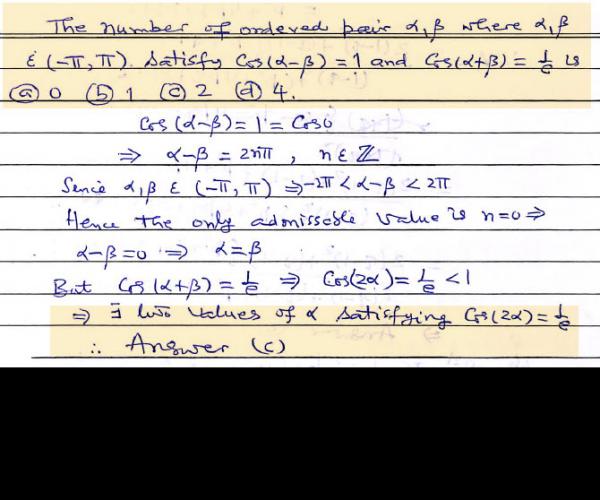 The number of ordered pair α,β where α,β
∈ (-π, π). Satisfy Cos(α-β) = 1 and Cos(α+β) = 1/e is
(a) 0 (b) 1 (c) 2 (d) 4.
Cos (α-β) = 1 = Cos0
⇒ α-β = 2nπ , n ∈ ℤ
Sence α,β ∈ (-π, π) ⇒ -2π < α-β < 2π
Hence the only admissable value is n=0 ⇒
α-β=0 ⇒ α=β
But Cos (α+β) = 1/e ⇒ Cos(2α) = 1/e < 1
⇒ ∃ two values of α satisfying Cos(2α) = 1/e
∴ Answer (c)